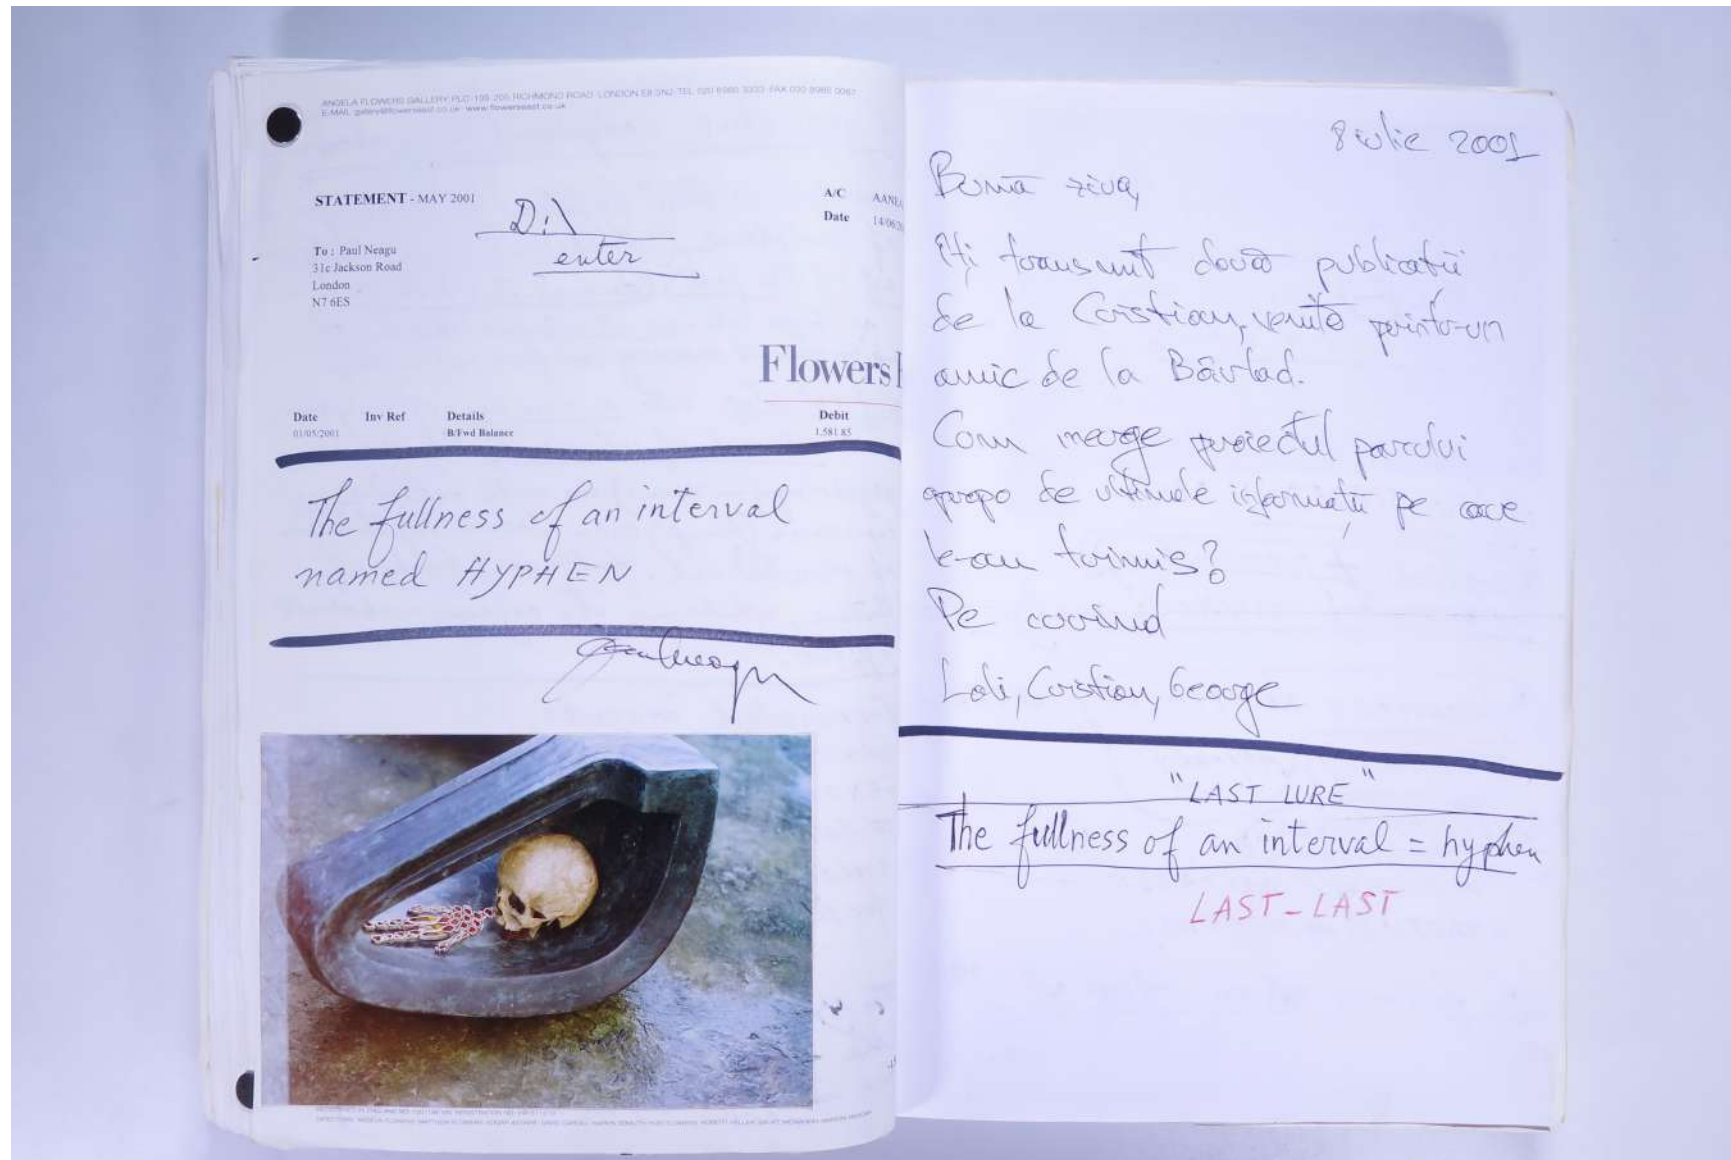 ANGELA FLOWERS GALLERY PLC 199-205 RICHMOND ROAD LONDON E8 3NJ TEL 020 8985 3333 FAX 020 8985 0067
E-MAIL gallery@flowerseast.co.uk www.flowerseast.co.uk
STATEMENT - MAY 2001
A/C
Date 14/06/20
To : Paul Neagu
31c Jackson Road
London
N7 6ES
enter
Flowers
Date Inv Ref Details Debit
01/05/2001 B/Fwd Balance 1,581.85
The fullness of an interval
named HYPHEN
8 iulie 2001
Bună ziua,
Iți transmit două publicatii
de la Cristian, venite printr-un
amic de la Bârlad.
Cum merge proiectul parcului
apropo de ultimele informații pe care
le-au trimis?
Pe curind
Loli, Cristian, George
"LAST LURE"
The fullness of an interval = hyphen
LAST-LAST